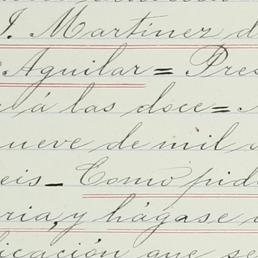 J. Martínez d
Aguilar = Pres
á las doce =
ueve de mil
eis - Como pid
ria, y hágase
licación que se